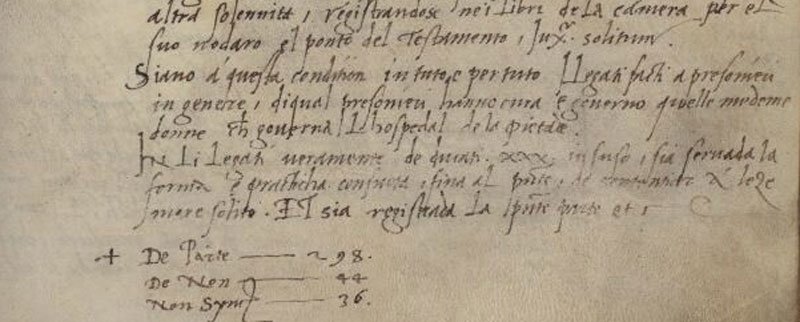 altra solennità, registrandose nei libri de la camera per el
suo nodaro el ponto del Testamento, Juxᵃ. solitum.
Siano à questa condition in tuto, e per tuto Llegati facti a presonieri
in genere, di qual presonieri hanno cura e governo quelle medeme
donne ch governa L hospedal de la pietade.
In Li Legati veramente de ducati. xxx. in suso, sia servada la
forma e pratticha consueta, fina al pnte, de à leze
more solito. Et sia registrada la pnte parte et,
+ De Parte — 98.
De Non — 44
Non Sync — 36.